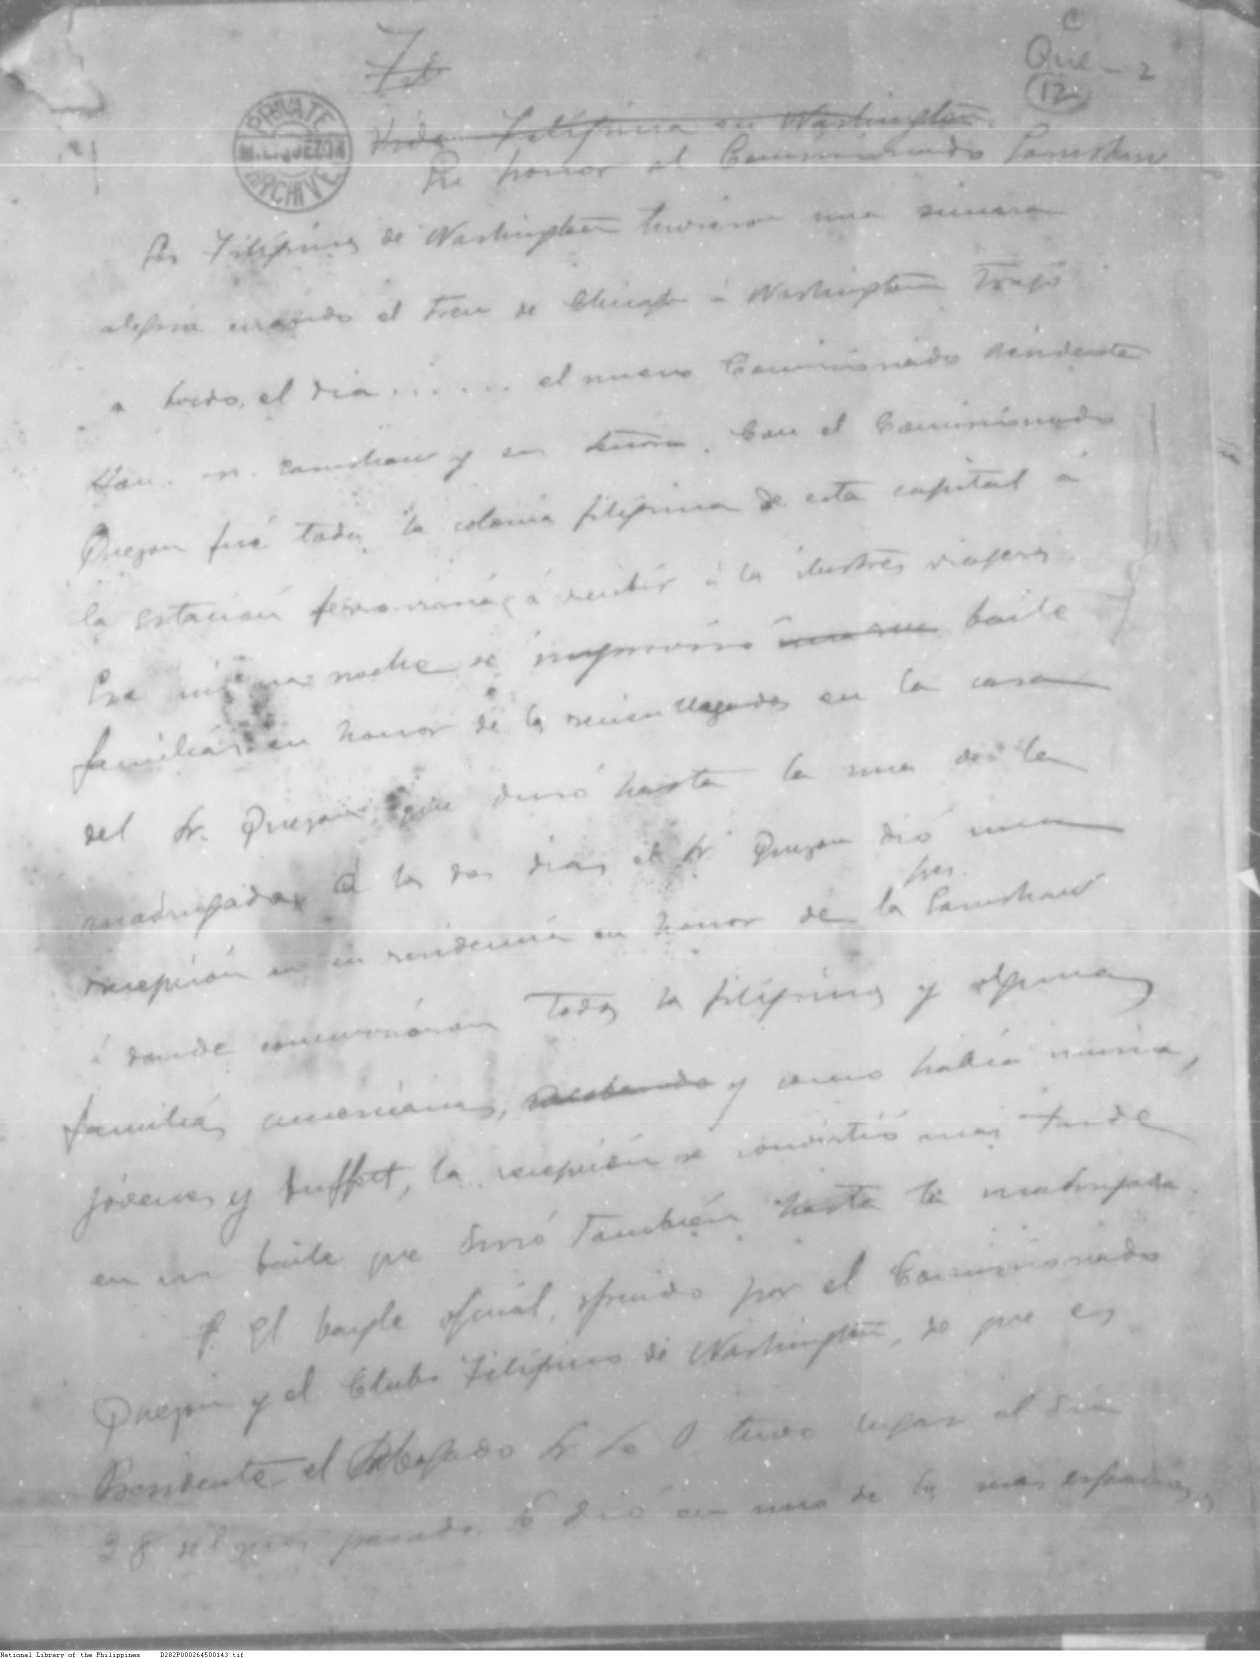 C
Que - 2
12
Feb
PRIVATE
M. L. QUEZON
ARCHIVE
Vida Filipina en Washington.
En honor al Comisionado Earnshaw
Los Filipinos de Washington tuvieron una sincera
alegria cuando el tren de Chicago á Washington trajó
a bordo, el dia ...... el nuevo Comisionado Residente
Hon. M. Earnshaw y su señora. Con el Comisionado
Quezon fué toda la colonia filipina de esta capital á
la estación ferroviaria, á recibir á los ilustres viajeros
Esa misma noche se improvisó baile
familiar en honor de los recien llegados en la casa
del Sr. Quezon que duró hasta la una de la
madrugada. A los dos dias el Sr. Quezon dió una
recepción en su residencia en honor de los Sres. Earnshaw
á donde concurrieron todos los filipinos y algunas
familias americanas, y como habia musica,
jóvenes y buffet, la recepción se convirtió mas tarde
en un baile que duró también hasta la madrugada.
El baile oficial, ofrecido por el Comisionado
Quezon y el Club Filipino de Washington, de que es
Presidente el Abogado Sr. tuvo lugar el dia
28 del mes pasado. Se dió en uno de los mas
National Library of the Philippines D282P000264500143.tif